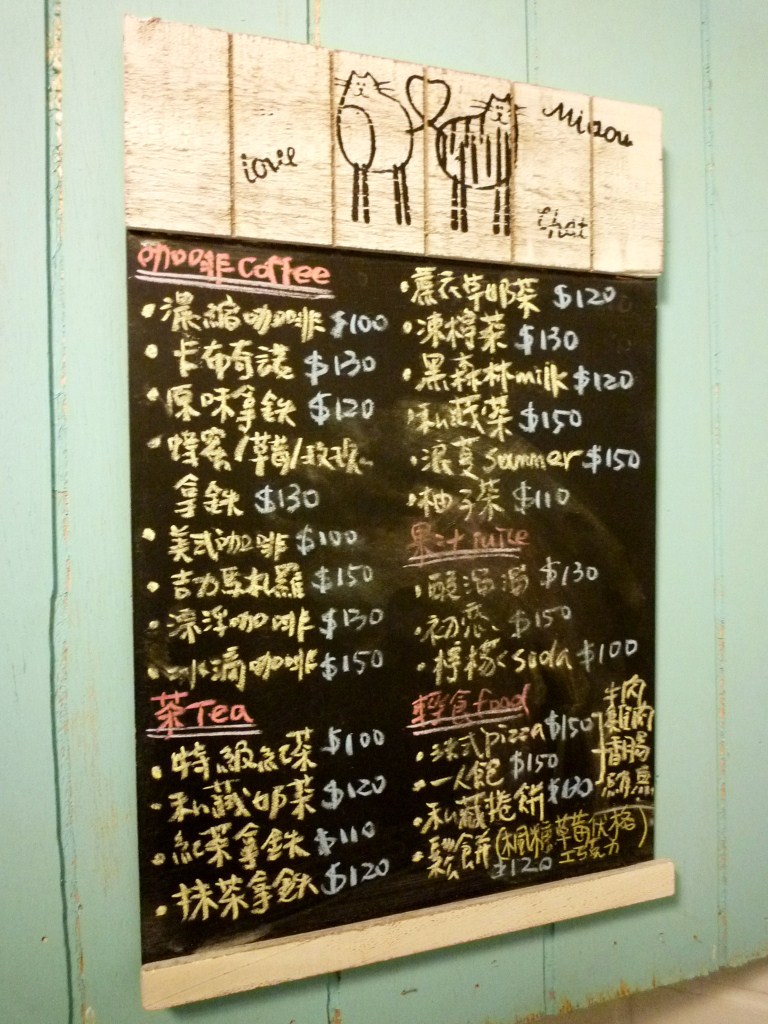 love
Miaou
Chat
咖啡 Coffee
·濃縮咖啡 $100
·卡布奇諾 $130
·原味拿鐵 $120
·蜂蜜/草莓/玫瑰
拿鐵 $130
·美式咖啡 $100
·吉力馬札羅 $150
·漂浮咖啡 $130
·冰滴咖啡 $150
茶Tea
·特級紅茶 $100
·私藏奶茶 $120
·紅茶拿鐵 $110
·抹茶拿鐵 $120
·薰衣草奶茶 $120
·凍檸茶 $130
·黑森林milk $120
·私藏茶 $150
·浪蔓summer $150
·柚子茶 $110
果汁juice
·酸溜溜 $130
·初戀 $150
·檸檬soda $100
輕食food
·法式pizza $150
·一人飽 $150
·私藏捲餅 $130
牛肉
雞肉
香腸
·鬆餅(楓糖草莓伏格
巧克力)
$120